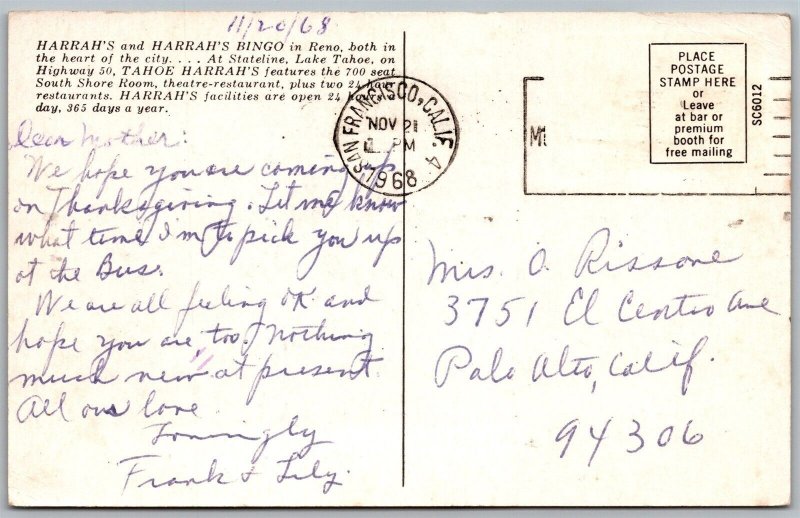 11/20/68
HARRAH'S and HARRAH'S BINGO in Reno, both in
the heart of the city. . . . At Stateline, Lake Tahoe, on
Highway 50, TAHOE HARRAH'S features the 700 seat
South Shore Room, theatre-restaurant, plus two 24 hour
restaurants. HARRAH'S facilities are open 24 hours a
day, 365 days a year.
Dear Mother:
We hope you are coming up
on Thanksgiving. Let me know
what time I'm to pick you up
at the Bus.
We are all feeling OK and
hope you are too. Nothing
much new at present.
All our love
Lovingly
Frank & Lily.
SAN FRANCISCO, CALIF. 4
NOV 21
PM
1968
PLACE
POSTAGE
STAMP HERE
or
Leave
at bar or
premium
booth for
free mailing
SC6012
Mrs. O. Rissone
3751 El Centro Ave
Palo Alto, Calif.
94306